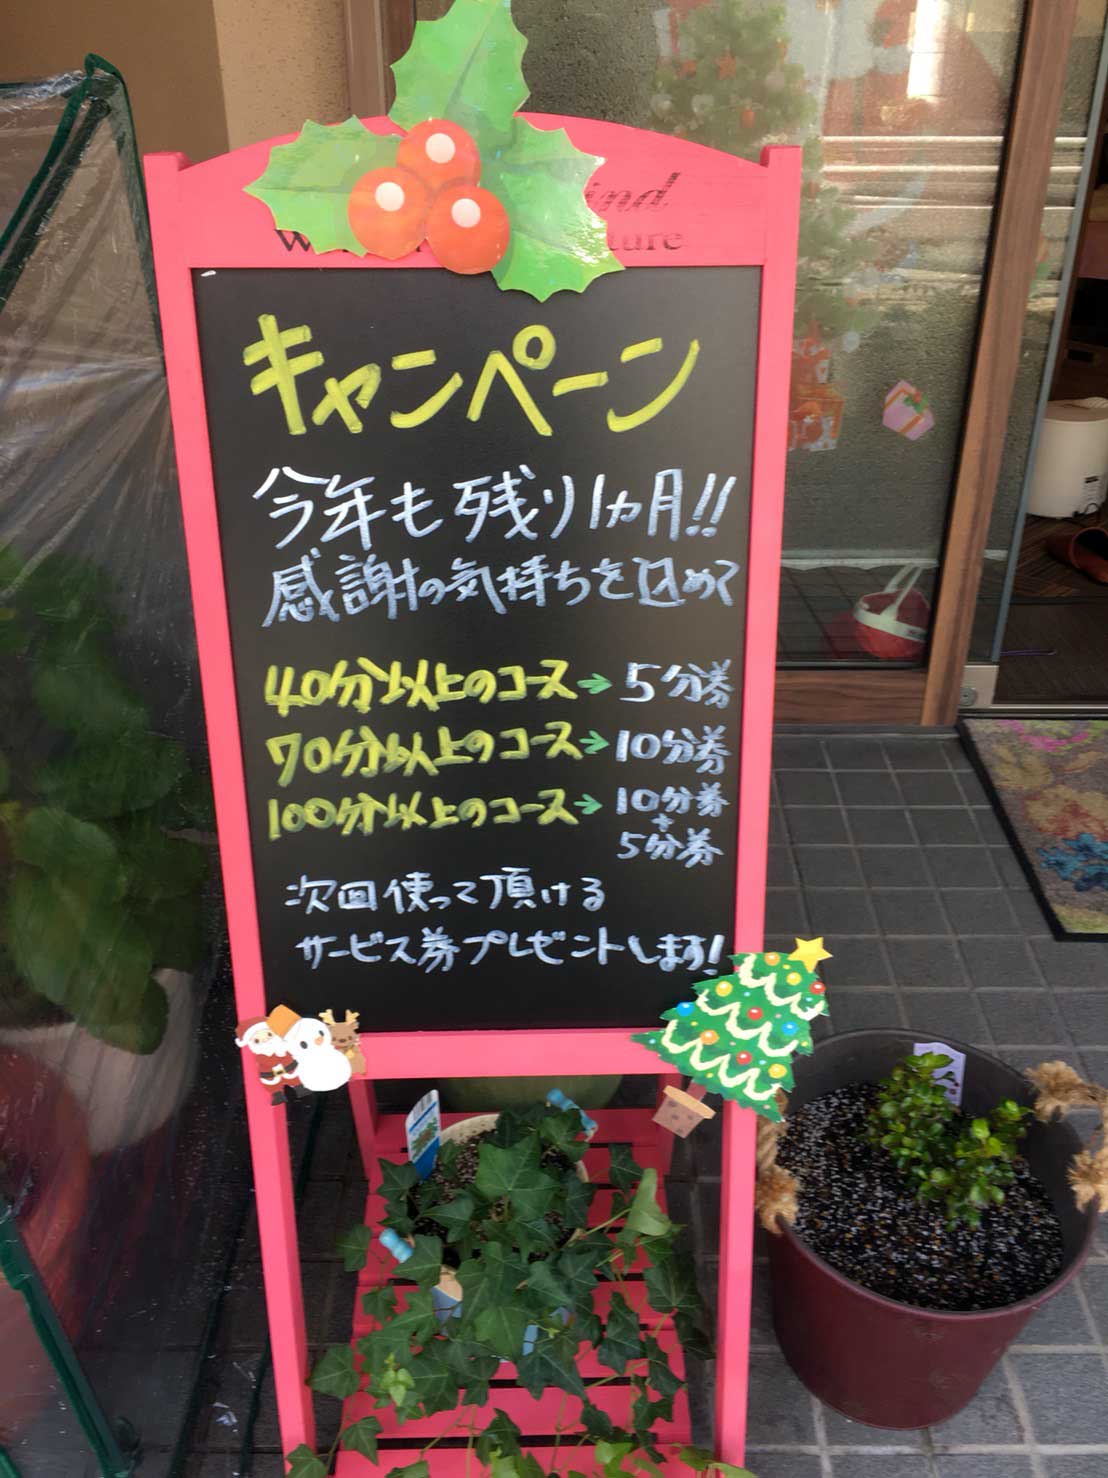 キャンペーン
今年も残り1ヵ月!!
感謝の気持ちを込めて
40分以上のコース→5分券
70分以上のコース→10分券
100分以上のコース→10分券
+
5分券
次回使って頂ける
サービス券プレゼントします!